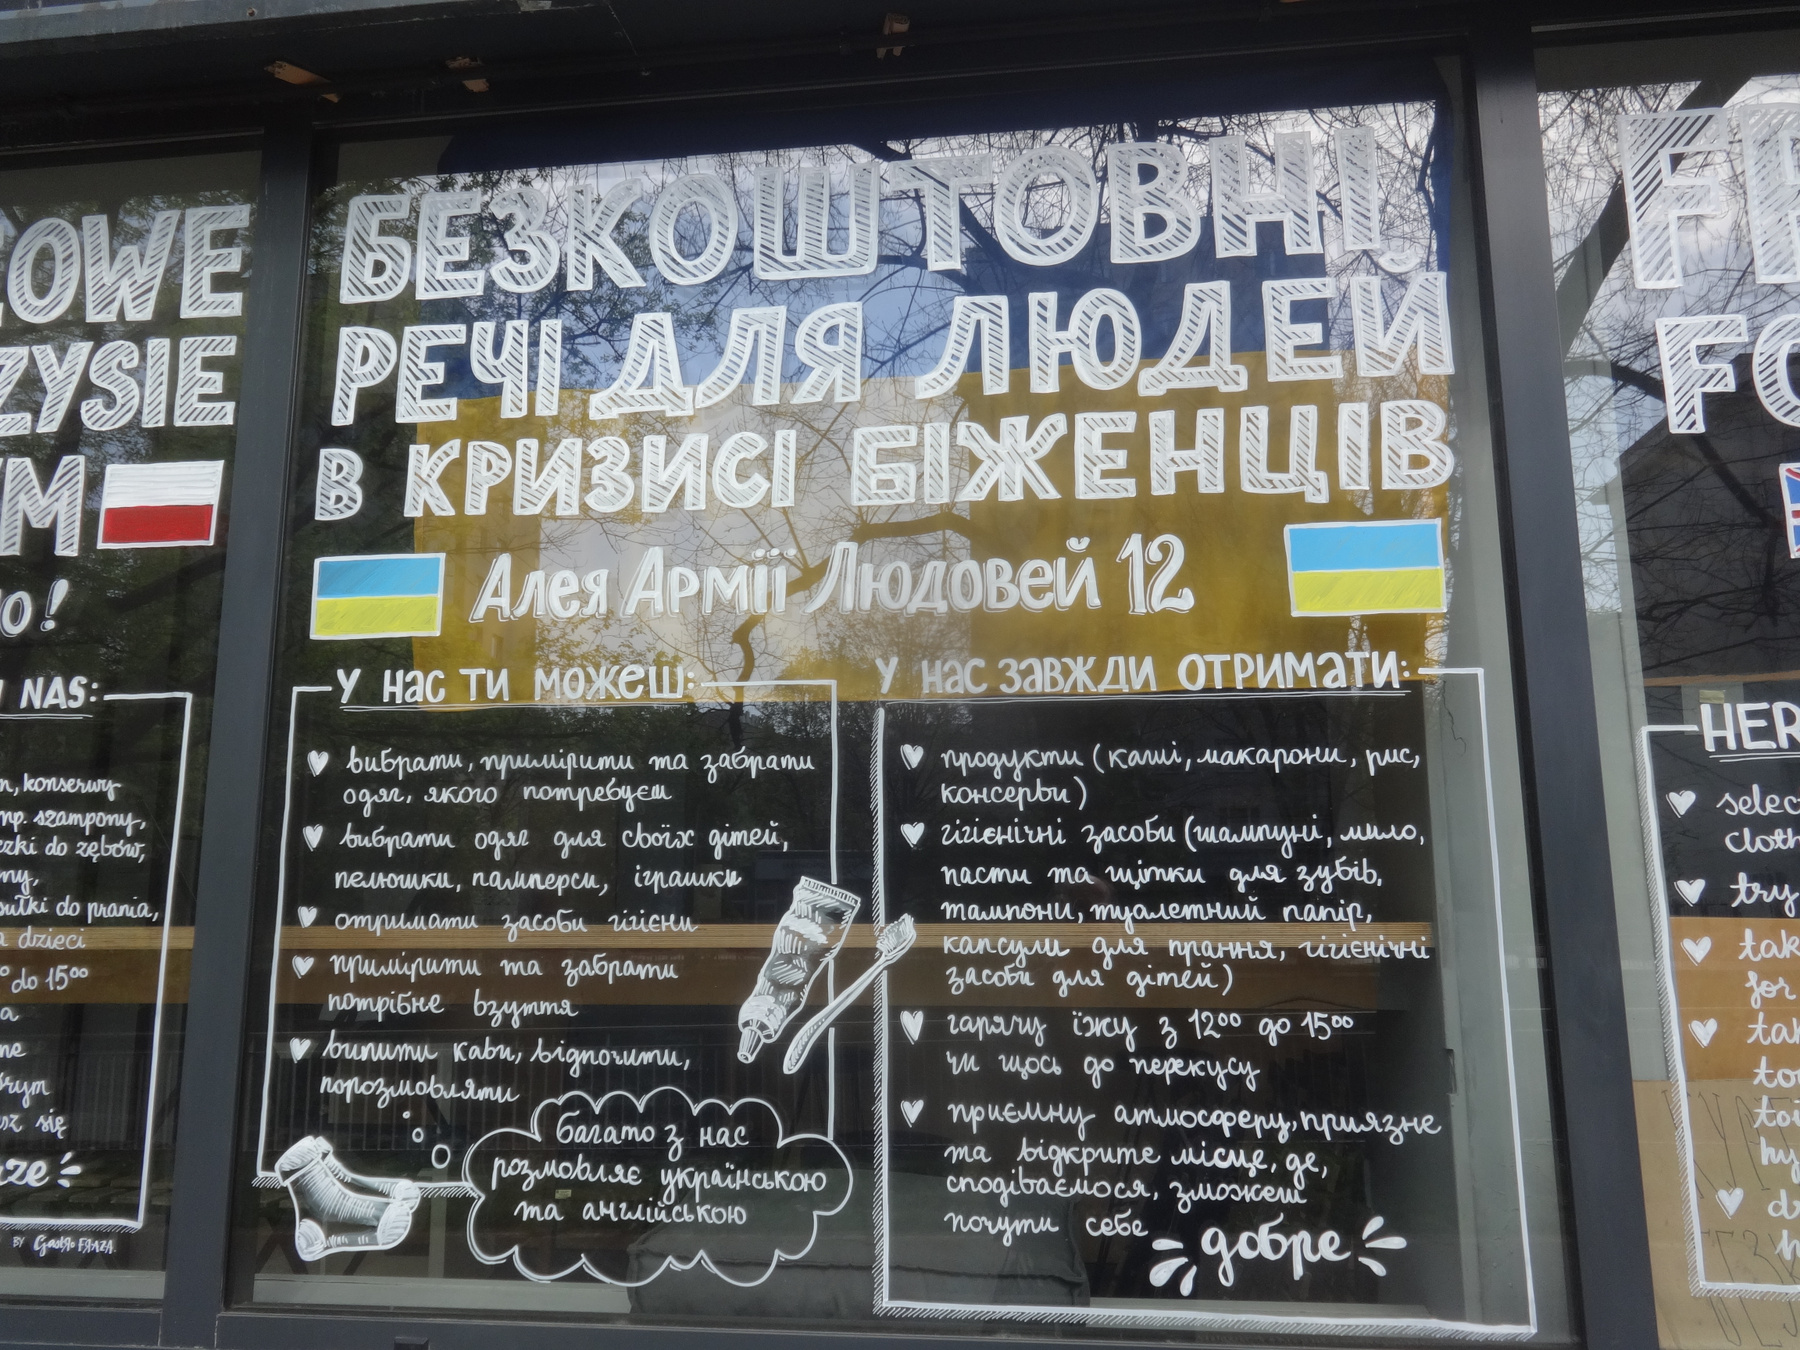 ZYSIE
NAS:
konserwy
np. szampony,
do zębów,
do prania,
dzieci
do 15⁰⁰
się
BY Gastro FRAZA.
БЕЗКОШТОВНІ
РЕЧІ ДЛЯ ЛЮДЕЙ
В КРИЗИСІ БІЖЕНЦІВ
Алея Армії Людовей 12
У нас ти можеш:
вибрати, примірити та забрати
одяг, якого потребуєш
вибрати одяг для своїх дітей,
пелюшки, памперси, іграшки
отримати засоби гігієни
примірити та забрати
потрібне взуття
випити кави, відпочити,
порозмовляти
багато з нас
розмовляє українською
та англійською
У нас завжди отримати:
продукти (каші, макарони, рис,
консерви)
гігієнічні засоби (шампуні, мило,
пасти та щітки для зубів,
тампони, туалетний папір,
капсули для прання, гігієнічні
засоби для дітей)
гарячу їжу з 12⁰⁰ до 15⁰⁰
чи щось до перекусу
приємну атмосферу, приязне
та відкрите місце, де,
сподіваємося, зможеш
почути себе
добре
try
for